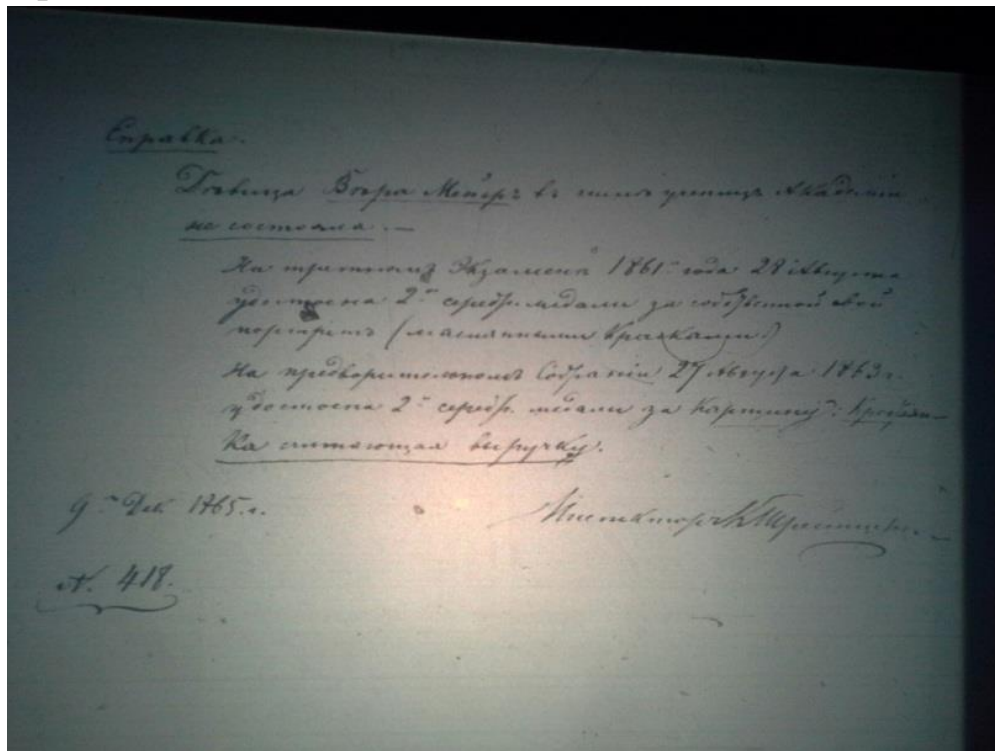 Справка.
Дѣвица Вѣра Мейеръ въ числѣ ученицъ Академіи
не состояла. —
На третномъ Экзаменѣ 1861 года 28 Августа
удостоена 2й серебр. медали за собственной свой
портретъ (маслянными красками)
На предворительномъ Собраніи 27 Августа 1863 г.
удостоена 2й серебр. медали за картину:
ка считающая выручку.
9го Дек. 1865. г.
Инспекторъ К.
N. 418.